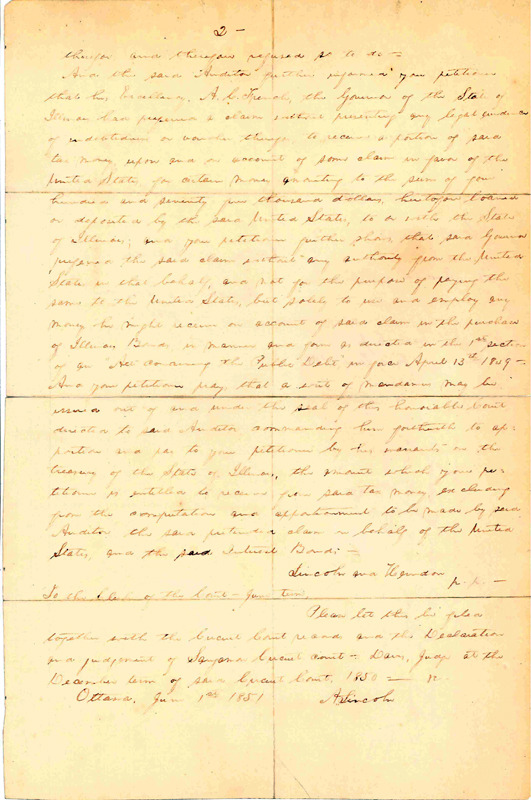 2 -
therefor and therefore refused so to do -
And the said Auditor further informed your petitioner
that his Excellency, A. C. French, the Governor of the State of
Illinois had presented a claim without presenting any legal evidence
of indebtedness or voucher therefor, to receive a portion of said
tax money, upon and on account of some claim in favor of the
United States, for certain money amounting to the sum of four
hundred and seventy five thousand dollars, heretofore loaned
or deposited by the said United States, to or with the State
of Illinois; and your petitioner further shows that said Governor
preferred the said claim without any authority from the United
States in that behalf, and not for the purpose of paying the
same to the United States, but solely to use and employ any
money he might receive on account of said claim in the purchase
of Illinois Bonds in manner and form as directed in the 1st section
of an "Act concerning the Public Debt" in force April 13th 1849 -
And your petitioner prays that a writ of mandamus may be
issued out of and under the seal of this honorable Court
directed to said Auditor commanding him forthwith to ap-
portion and pay to your petitioner by his warrant on the
treasury of the State of Illinois, the amount which your pe-
titioner is entitled to receive from said tax money, excluding
from the computation and apportionment to be made by said
Auditor the said pretended claim on behalf of the United
States, and the said Interest Bonds; -
Lincoln and Herndon
p. p. -
To the Clerk of the Court - June term,
Please let this be filed
together with the Circuit Court record and the Declaration
and judgement of Sangamon Circuit Court - Davis, Judge at the
December term of said Circuit Court, 1850 -
Ottawa, June 1st 1851 A Lincoln